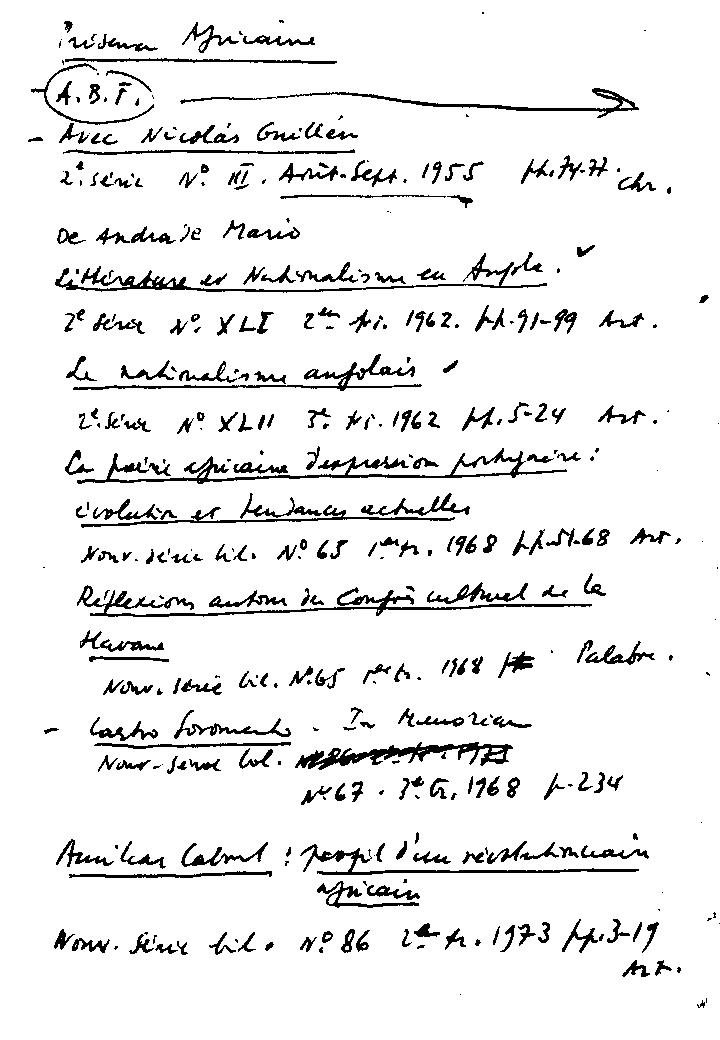 Présence Africaine
- A.B.F.
- Avec Nicolás Guillén
2e. série Nº III. Août-Sept. 1955 pp.74-77. Chr.
De Andrade Mario
Littérature et Nationalisme en Angola. ✓
2e série Nº. XLI 2em tri. 1962. pp.91-99 Art.
Le nationalisme angolais ✓
2e. série Nº XLII 3e. tri. 1962 pp.5-24 Art.
La poésie africaine d'expression portugaise :
évolution et tendances actuelles
Nouv. série bil. Nº 65 1er tr. 1968 pp.51-68 Art.
Réflexions autour du Congrès culturel de la
Havane
Nouv. série bil. Nº65 1er tr. 1968 Palabre.
- Castro Soromenho - In Memoriam
Nouv-série bil.
Nº 67. 3e tr. 1968 p.234
Amilcar Cabral : profil d'un révolutionnaire
africain
Nouv. Série bil. Nº 86 2em tr. 1973 pp.3-19
Art.